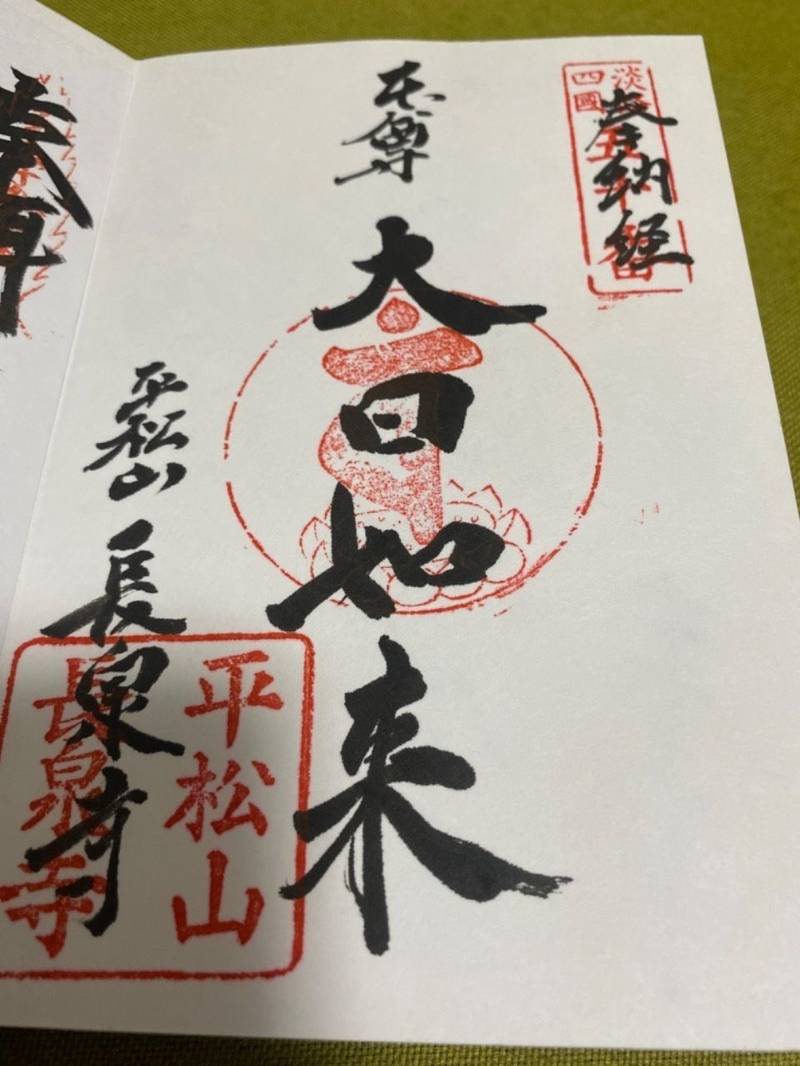 奉納経
淡
四國
本尊
大日如来
平松山 長泉寺
平松山
長泉寺